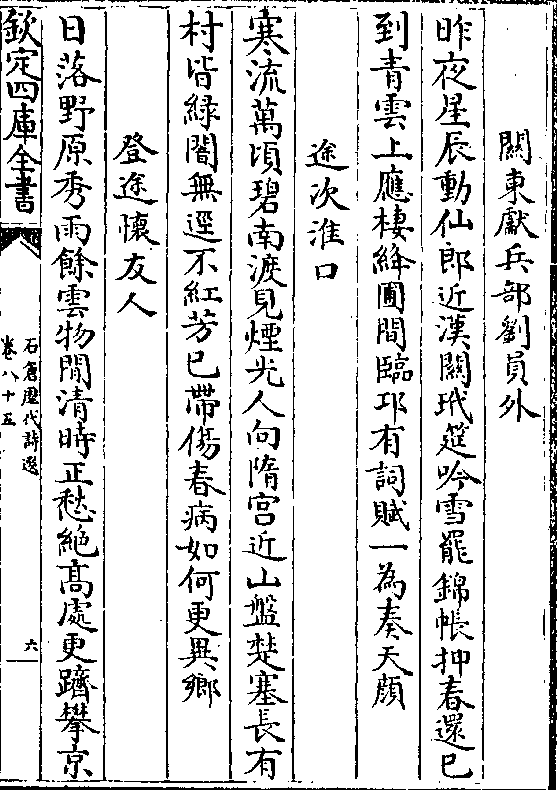 關東獻兵部劉員外
昨夜星辰動仙郎近漢關玳筵吟雪罷錦帳押春還已
到青雲上應棲絳圃間臨卭有詞賦一為奏天顔
途次淮口
寒流萬頃碧南渡見煙光人向隋宫近山盤楚塞長有
村皆綠闇無逕不紅芳已帶傷春病如何更異鄉
登途懷友人
日落野原秀雨餘雲物閒清時正愁絶髙處更躋攀京
欽定四庫全書
石倉歴代詩選
卷八十五
六